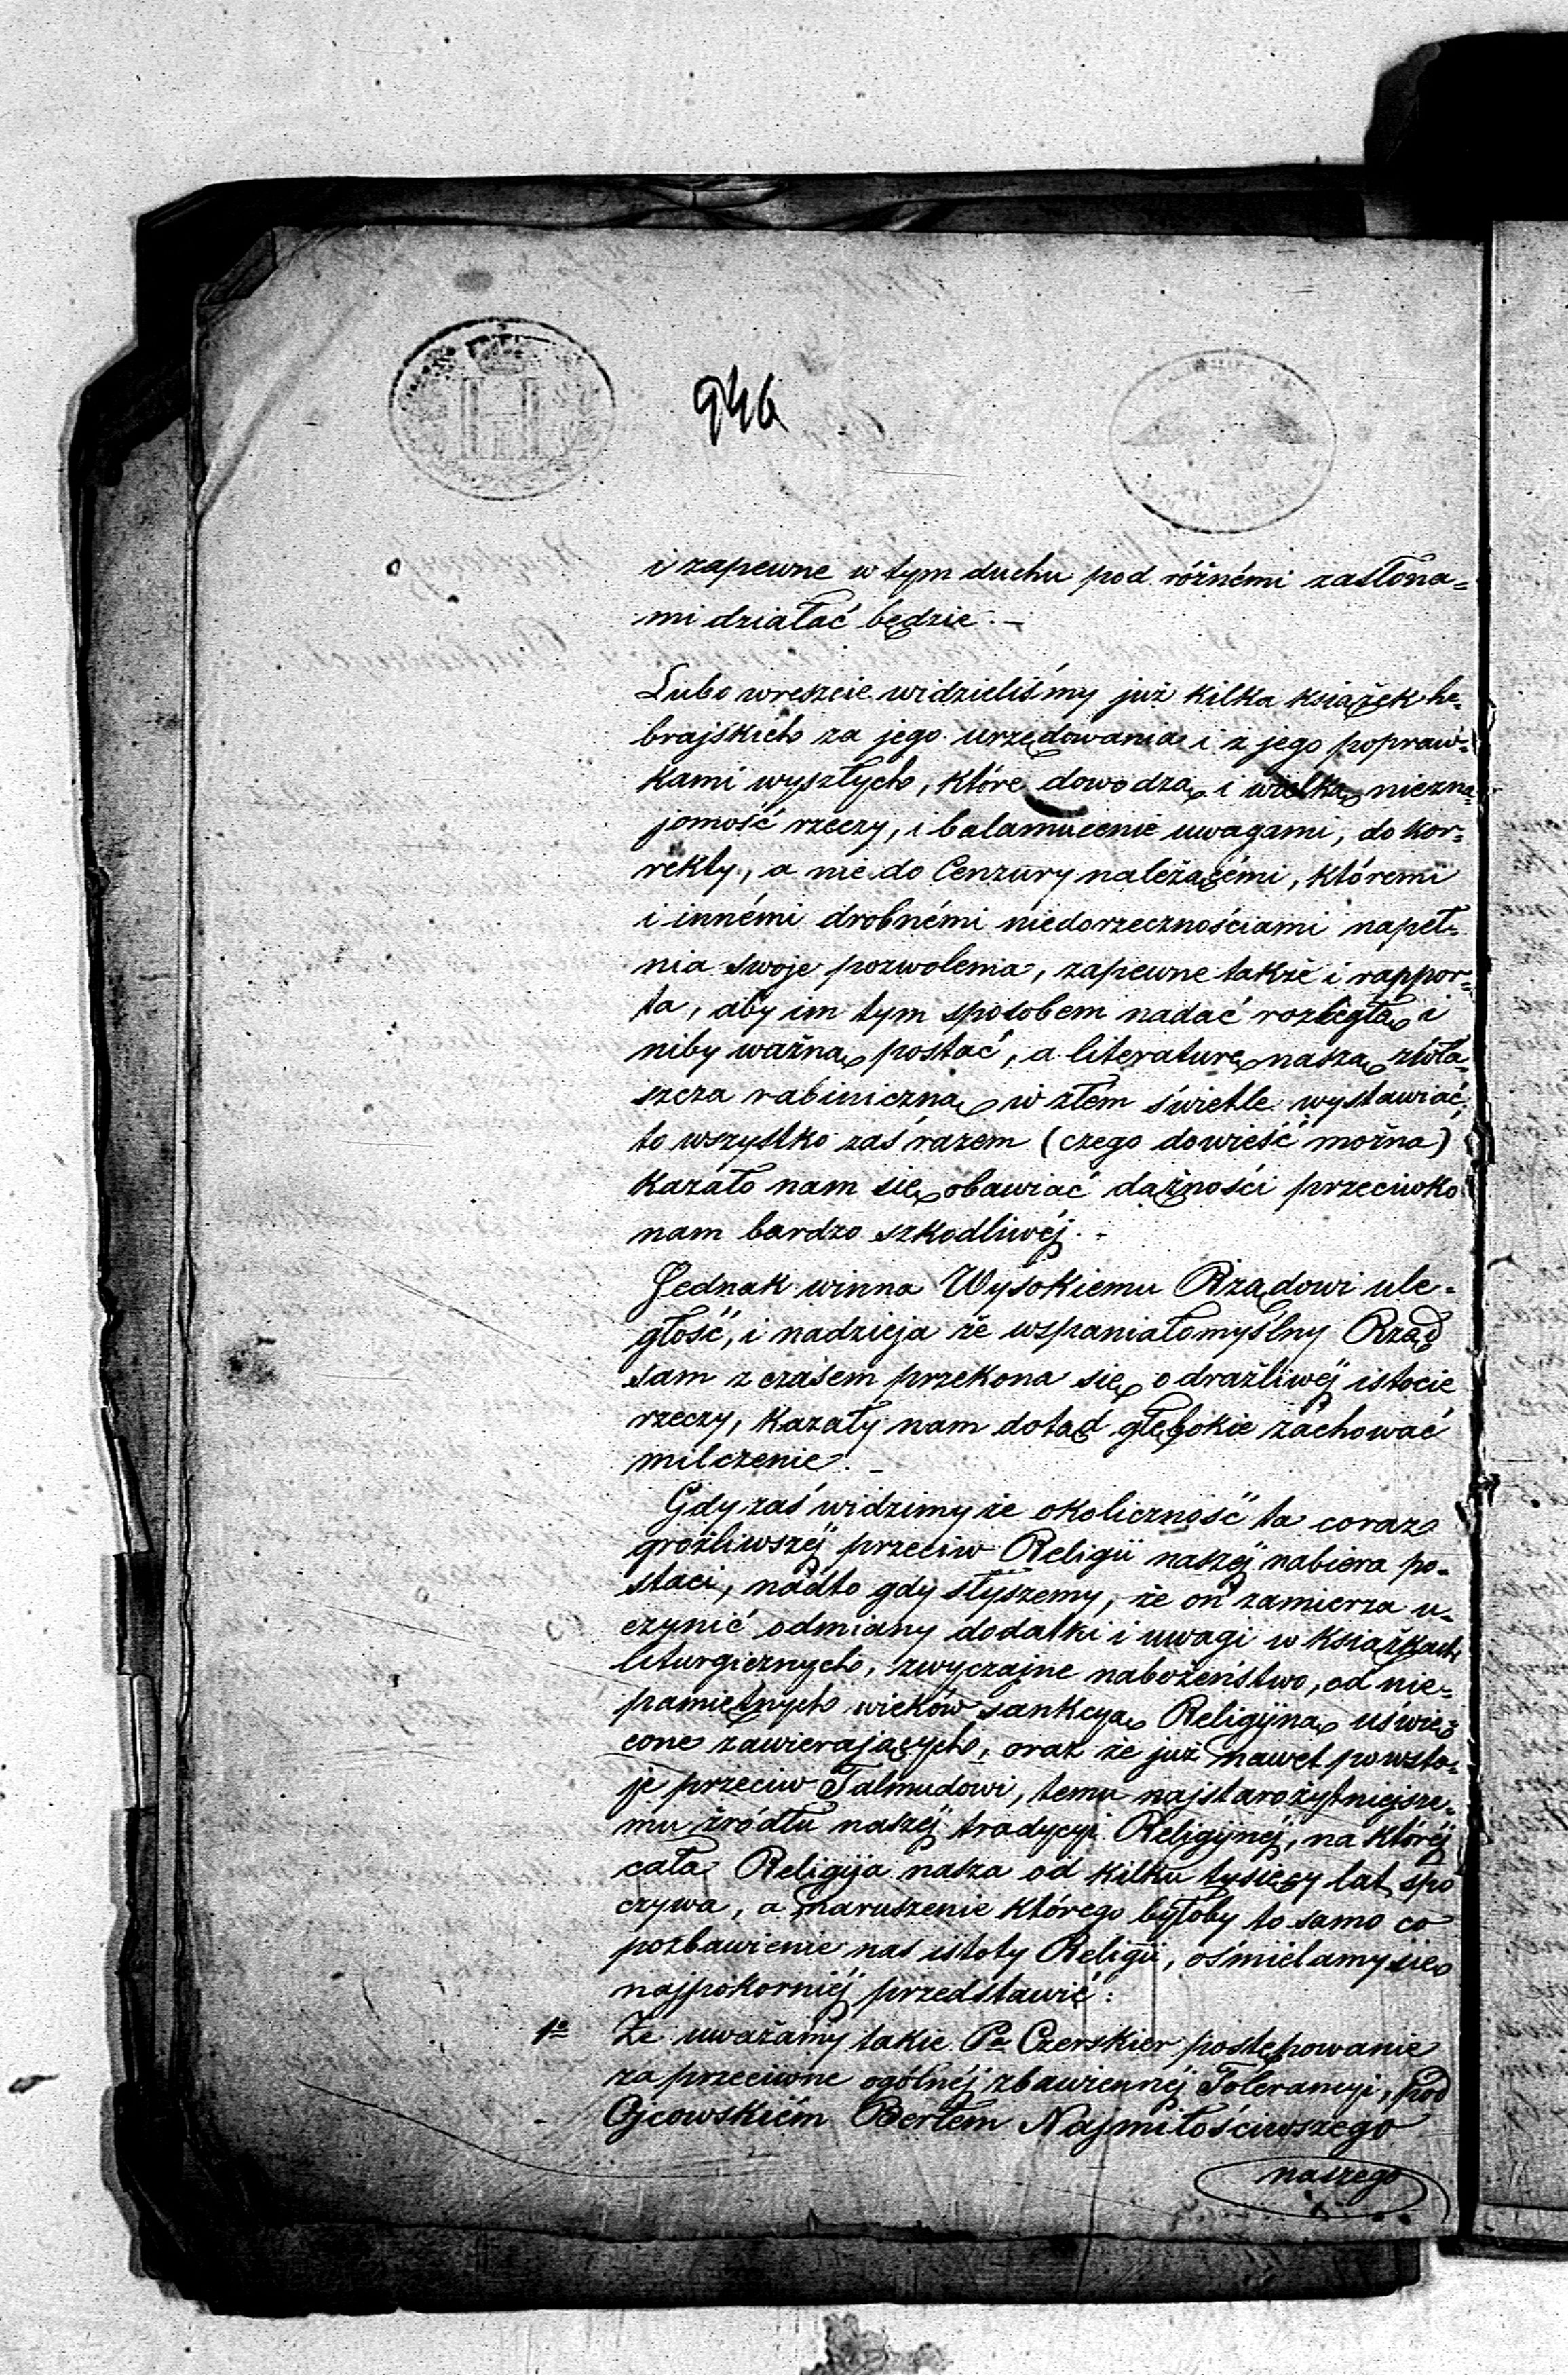 946
i zapewne w tym duchu pod różnémi zasłona=
mi działać będzie. —
Lubo wreszcie widzieliśmy już kilka książek he=
brajskich za jego urzędowania i z jego popraw=
kami wyszłych, które dowodzą i wielką niezna=
jomość rzeczy, i bałamucenie uwagami, do kor=
rekty, a nie do Cenzury należącémi, któremi
i innémi drobnémi niedorzecznościami napeł=
nia swoje pozwolenia, zapewne także i rappor=
ta, aby im tym sposobem nadać rozległą i
niby ważną postać, a literaturę naszą zwła=
szcza rabiniczną w złém świetle wystawiać,
to wszystko zaś razem (czego dowieść można)
kazało nam się obawiać dążności przeciwko
nam bardzo szkodliwéj. -
Jednak winna Wysokiemu Rządowi ule=
głość, i nadzieja że wspaniałomyślny Rząd
sam z czasem przekona się o drażliwéj istocie
rzeczy, kazały nam dotąd głębokie zachować
milczenie. —
Gdy zaś widzimy że okoliczność ta coraz
groźliwszéj przeciw Religii naszéj nabiera po=
staci, nadto gdy słyszemy, że on zamierza u=
czynić odmiany dodatki i uwagi w książkach
liturgicznych, zwyczajne nabożeństwo, od nie=
pamiętnych wieków sankcyą Religijną uświę=
cone zawierających, oraz że już nawet powsta=
je przeciw Talmudowi, temu najstarożytniejsze=
mu źródłu naszéj tradycyi Religijnéj, na któréj
cała Religija nasza od kilku tysięcy lat spo
czywa, a naruszenie którego byłoby to samo co
pozbawienie nas istoty Religii, ośmielamy się
najpokorniéj przedstawić:
1o Że uważamy takie Pa Czerskier postępowanie
za przeciwne ogólnéj zbawiennéj Tolerancyi, pod
Ojcowskiém Berłem Najmiłościwszego
naszego